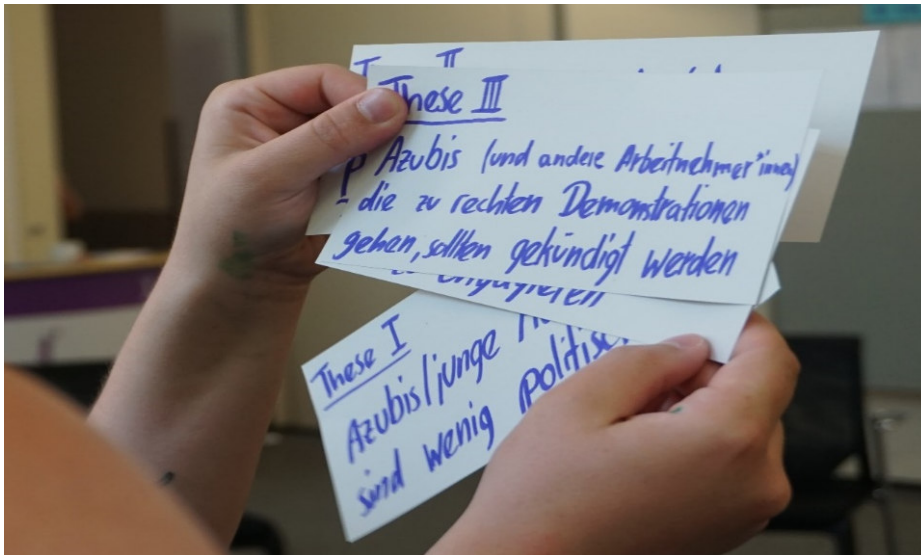 These III
Azubis (und andere Arbeitnehmer*innen)
die zu rechten Demonstrationen
gehen, sollten gekündigt werden
These I
Azubis/junge
sind wenig